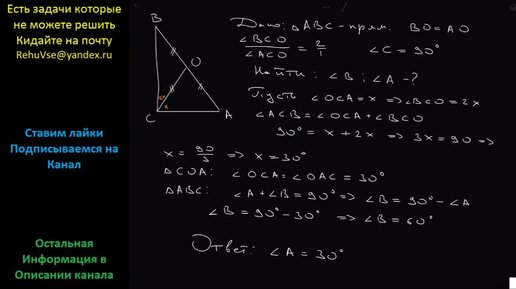 Есть задачи которые
не можете решить
Кидайте на почту
RehuVse@yandex.ru
Ставим лайки
Подписываемся на
Канал
Остальная
Информация в
Описании канала
B
O
2x
x
C
A
Дано: △ABC - прям. BO = AO
∠BCO / ∠ACO = 2/1 ∠C = 90°
Найти: ∠B; ∠A - ?
Пусть ∠OCA = x => ∠BCO = 2x
∠ACB = ∠OCA + ∠BCO
90° = x + 2x => 3x = 90 =>
x = 90/3 => x = 30°
△COA: ∠OCA = ∠OAC = 30°
△ABC: ∠A + ∠B = 90° => ∠B = 90° - ∠A
∠B = 90° - 30° => ∠B = 60°
Ответ: ∠A = 30°